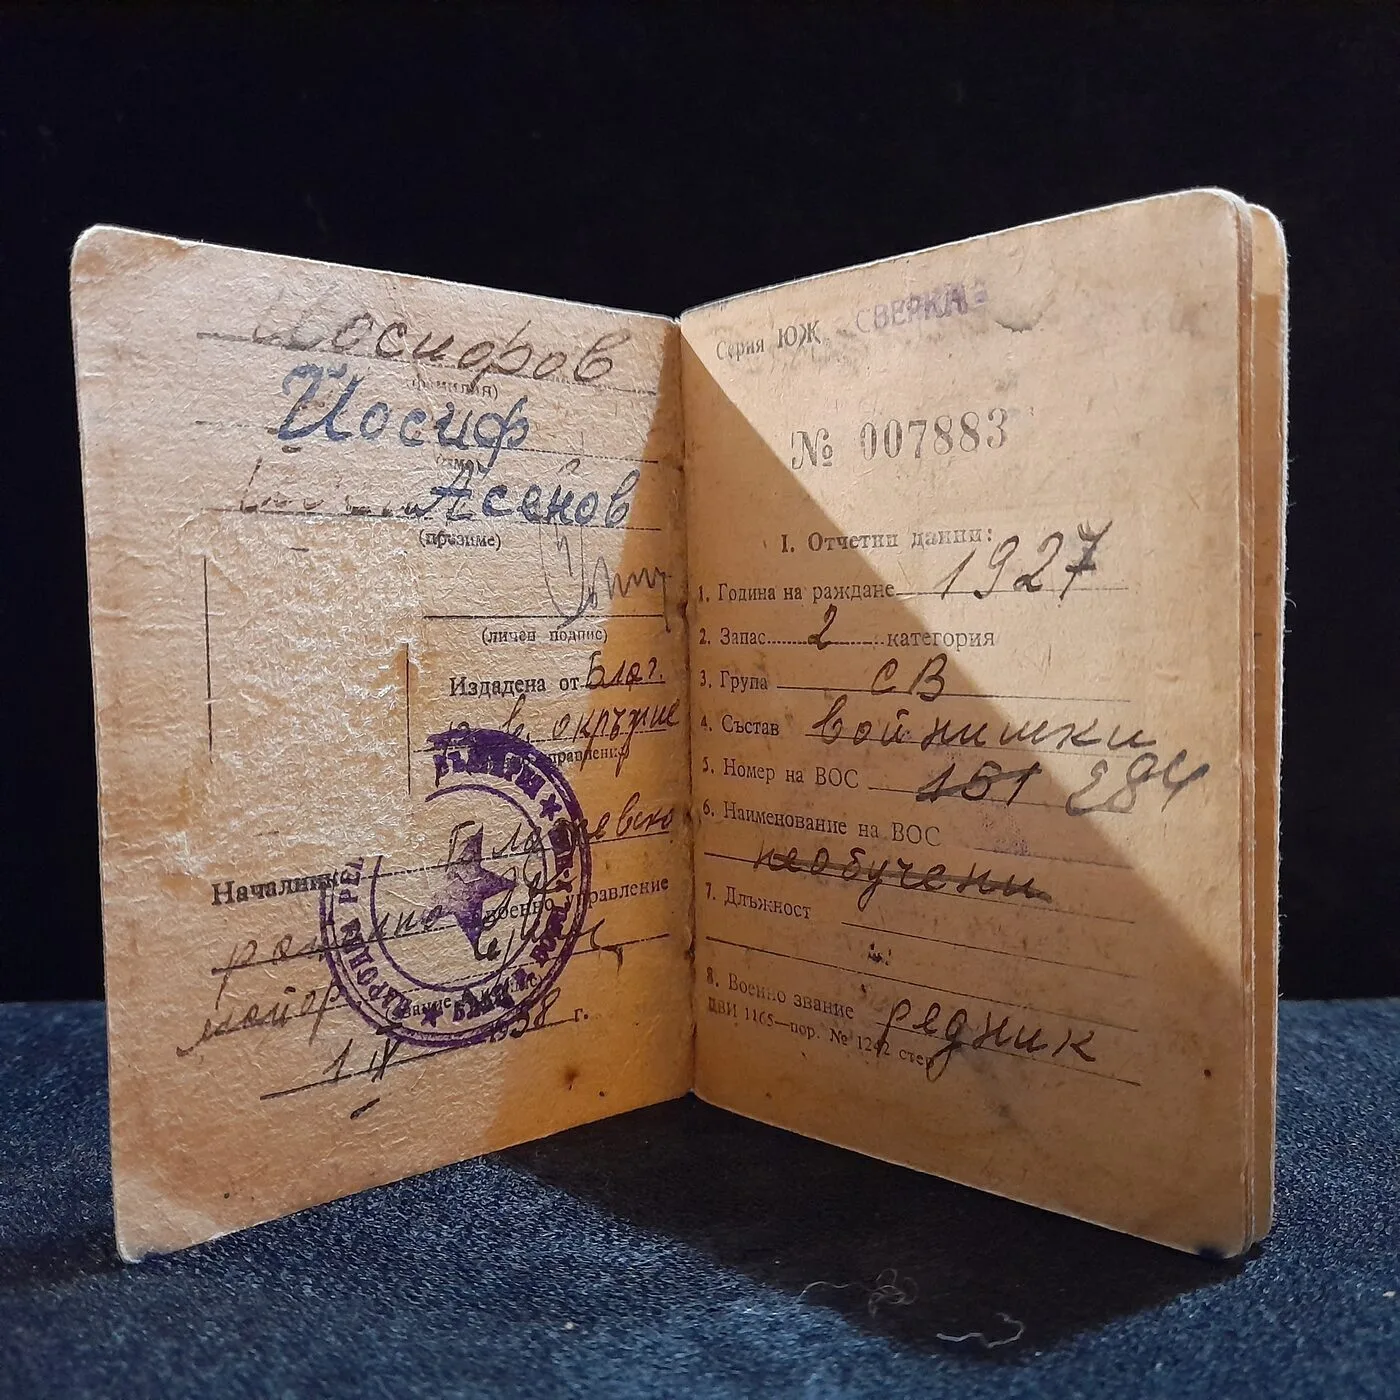 Йосифов
(фамилия)
Йосиф
(име)
Асенов
(презиме)
(личен подпис)
Издадена от Благ.
в. окръжие
управление
Началник
военно управление
майор
1 IV 1958 г.
БЪЛГАРИЯ
НАРОДНА РЕП
Серия ЮЖ СВЕРКА
№ 007883
I. Отчетни данни:
1. Година на раждане 1927
2. Запас 2 категория
3. Група СВ
4. Състав войнишки
5. Номер на ВОС 151 284
6. Наименование на ВОС
необучени
7. Длъжност
8. Военно звание редник
ДВИ 1165—пор. № 1242 стер